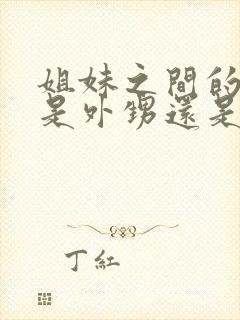 姐妹之間的
是外甥還是
丁紅